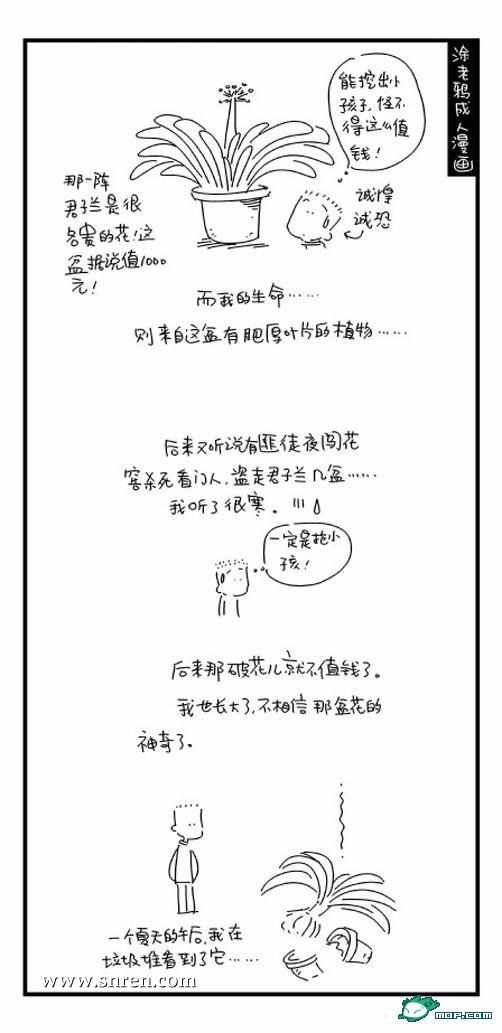 涂老鸦成人漫画
能挖出小
孩子,怪不
得这么值
钱!
那一阵
君子兰是很
名贵的花!这
盆据说值1000
元!
诚惶
诚恐
而我的生命……
则来自这盆有肥厚叶片的植物……
后来又听说有匪徒夜闯花
窖杀死看门人,盗走君子兰几盆……
我听了很寒。
一定是抢小
孩!
后来那破花儿就不值钱了。
我也长大了,不相信那盆花的
神奇了。
一个夏天的午后,我在
垃圾堆看到了它……
www.snren.com
mop.com